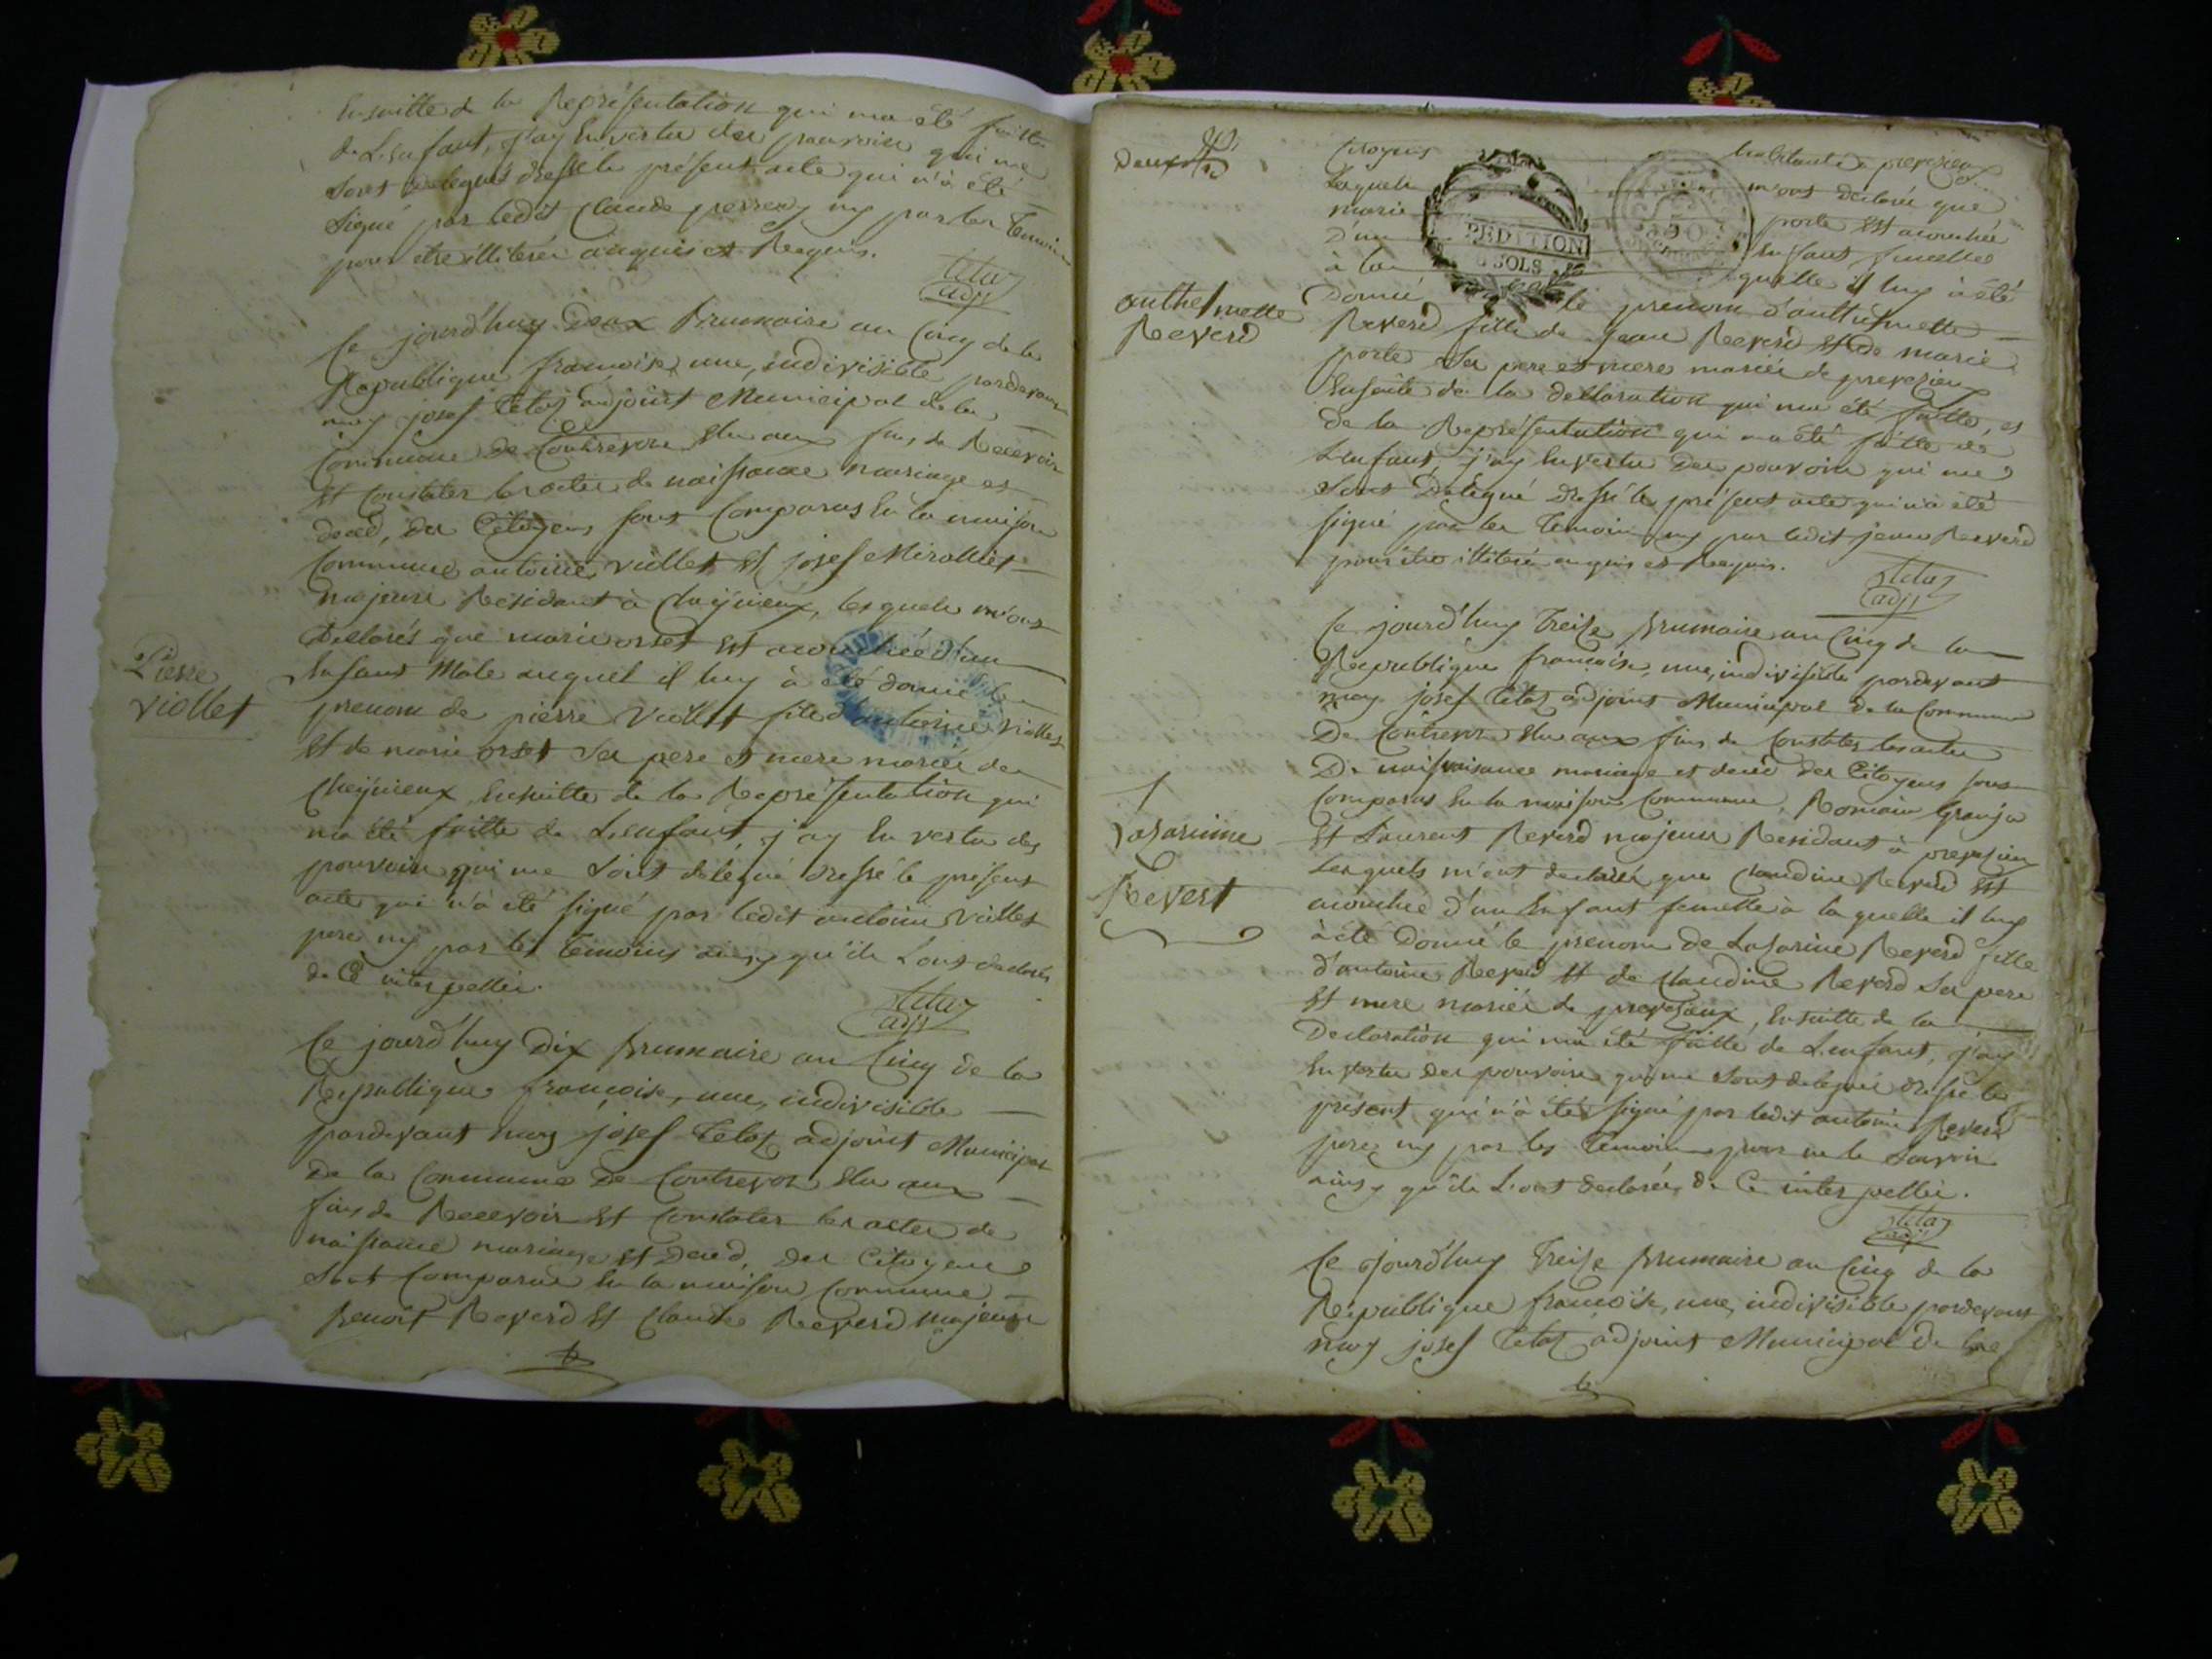 Ensuitte de la Représentation qui ma été faitte
de L'enfant, j'ay En vertu des pouvoirs qui me
sont delegués dressé le présent acte qui n'à été
signé par ledit Claude perreay ny par les Temoins
pour etre illiteré enquis et Requis.
tetaz
adjt
Ce jourd'huy Deux Brumaire an Cinq de la
Republique françoise, une, indivisible pardevant
moy josef tetaz adjoint Municipal de la
Commune de Contrevoz Elu aux fins de Recevoir
Et Constater les actes de naissance mariage et
deced, des Citoyens sont Comparus En la maison
Commune antoine viollet Et josef Mirolliet
majeurs Residant à Cheÿnieux, lesquels m'ont
Declarés que marie orset Est acouchée d'un
Enfant Male auquel il luy à été donné le
prenom de pierre Viollet fils d'antoine viollet
Et de marie orset Ses pere et mere mariés de
Cheÿnieux, Ensuitte de la Représentation qui
ma été faitte de L'enfant, j'ay En vertu des
pouvoirs qui me Sont délegué dressé le présent
acte qui n'à été signé par ledit antoine viollet
pere ny par les Temoins ainsy qu'ils L'ont declarés
de Ce interpellés.
Pierre
viollet
tetaz
adjt
Ce jourd'huy Dix Brumaire an Cinq de la
Republique françoise, une, indivisible
pardevant moy josef tetaz adjoint Municipal
de la Commune de Contrevoz Elu aux
fins de Recevoir Et Constater les actes de
naissance mariage Et Deced, des Citoyens
Sont Comparus En la maison Commune
Benoit Reverd Et Claude Reverd majeurs
Deux
Citoyens habitants à preveyzieu
Lesquels m'ont declarés que
marie porte Est acouchée
D'un Enfant femelle
à la quelle il luy à été
EXPEDITION
SOLS
50
Donné le prenom d'anthelmette
Reverd fille de jean Reverd Et de marie
porte Ses pere et mere mariés de preveyzieu
Ensuite de la declaration qui ma été faitte, et
de la Représentation qui ma été faitte de
L'enfant, j'ay En vertu des pouvoirs qui me
Sont Delegué dressé le présent acte qui n'a été
signé par les Temoins ny par ledit jean Reverd
pour être illiteré enquis et Requis.
anthelmette
Reverd
tetaz
adjt
Ce jourd'huy Treize Brumaire an Cinq de la
Republique françoise, une, indivisible pardevant
moy josef tetaz adjoint Municipal de la Commune
De Contrevoz Elu aux fins de Constater les actes
De naissaisance mariage et deced des Citoyens sont
Comparus En la maison Commune, Romain Granja
Et Laurent Reverd majeurs Residant à preveyzieu
Lesquels m'ont declarés que Claudine Reverd Est
acouchée d'un Enfant femelle à la quelle il luy
à été Donné le prenom de Lasarine Reverd fille
d'antoine Reverd Et de Claudine Reverd Ses pere
Et mere mariés de preveyzieux, Ensuitte de la
Declaration qui ma été faitte de L'enfant, j'ay
En vertu des pouvoirs qui me Sont delegué dressé le
présent qui n'à été signé par ledit antoine Reverd
pere ny par les Temoins pour ne le Savoir
ainsy qu'ils L'ont declarés, de Ce interpellés.
Lasarinne
Revert
tetaz
adjt
Ce jourd'huy Treize Brumaire an Cinq de la
Republique françoise, une, indivisible pardevant
moy josef tetaz adjoint Municipal de la